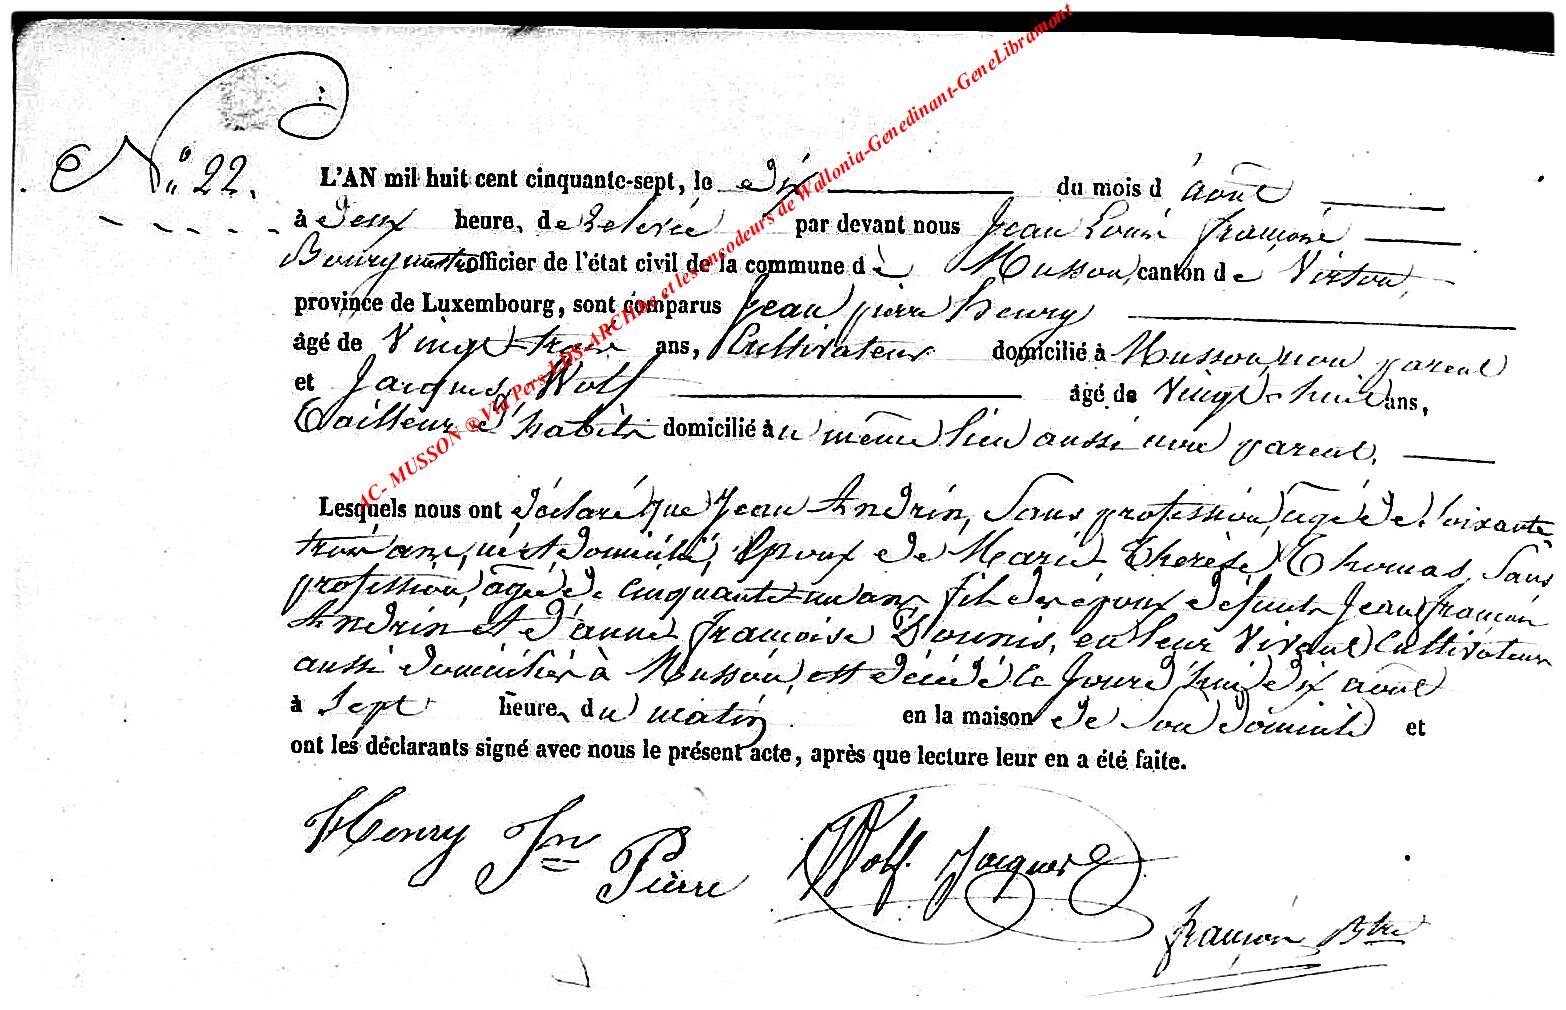 N° 22.
L'AN mil huit cent cinquante-sept, le dix du mois d'août
à deux heures de relevée par devant nous Jean Louis François
Bourgmestre officier de l'état civil de la commune de Musson, canton de Virton,
province de Luxembourg, sont comparus Jean pierre henry
âgé de Vingt-trois ans, Cultivateur domicilié à Musson, non parent
et Jacques Wolf âgé de Vingt-huit ans,
Tailleur d'habits domicilié au même lieu aussi non parent.
Lesquels nous ont déclaré que Jean Andrin, Sans profession, agé de Soixante
trois ans, né et domicilié, Epoux de Marie Thérèse Thomas, Sans
profession, agée de cinquante-un ans, fils des époux défunts Jean françois
Andrin et d'anne françoise, en leur Vivant Cultivateurs
aussi domiciliés à Musson, est décédé ce Jourd'hui dix août
à Sept heures du matin en la maison de Son domicile et
ont les déclarants signé avec nous le présent acte, après que lecture leur en a été faite.
Henry Jn Pierre Wolf Jacques
françois Btre
AC- MUSSON ® Via Pers-LDS-ARCHbe et les encodeurs de Wallonia-Genedinant-GeneLibramont